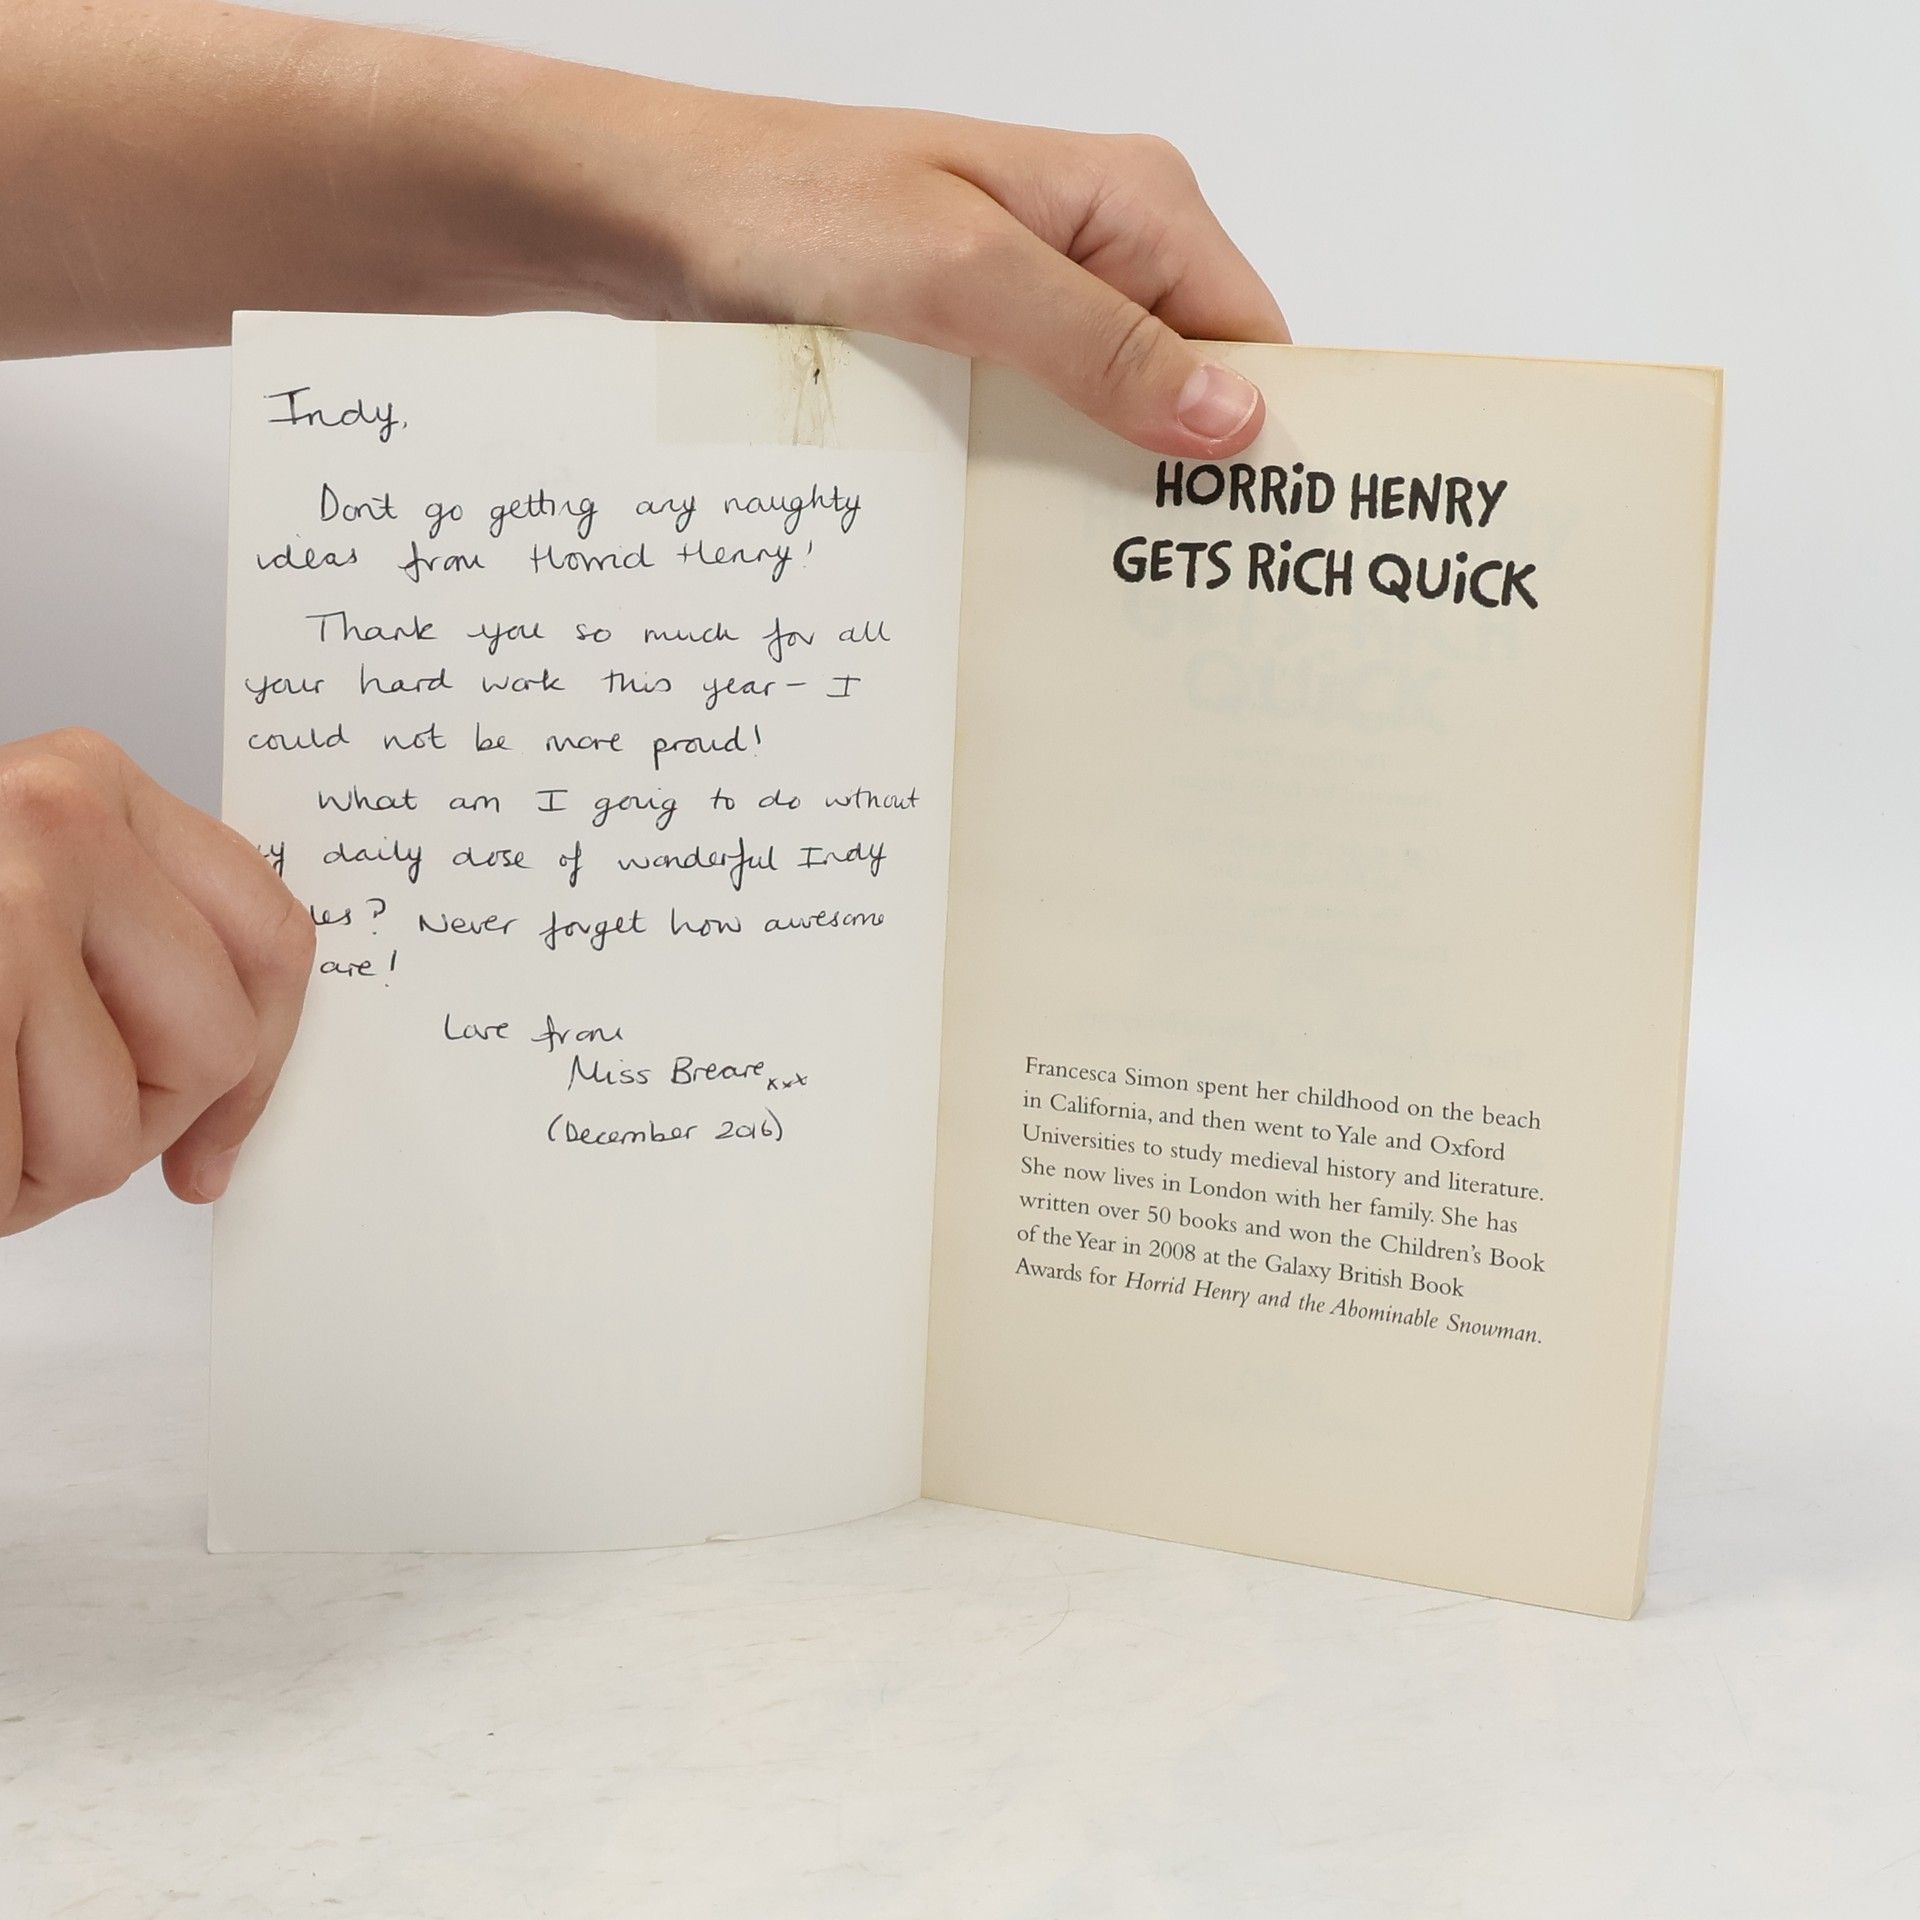 Indy,
Don't go getting any naughty
ideas from Horrid Henry!
Thank you so much for all
your hard work this year – I
could not be more proud!
What am I going to do without
daily dose of wonderful Indy
Never forget how awesome
are!
Love from
Miss Breare xxx
(December 2016)
HORRiD HENRY
GETS RiCH QUiCK
Francesca Simon spent her childhood on the beach
in California, and then went to Yale and Oxford
Universities to study medieval history and literature.
She now lives in London with her family. She has
written over 50 books and won the Children's Book
of the Year in 2008 at the Galaxy British Book
Awards for Horrid Henry and the Abominable Snowman.